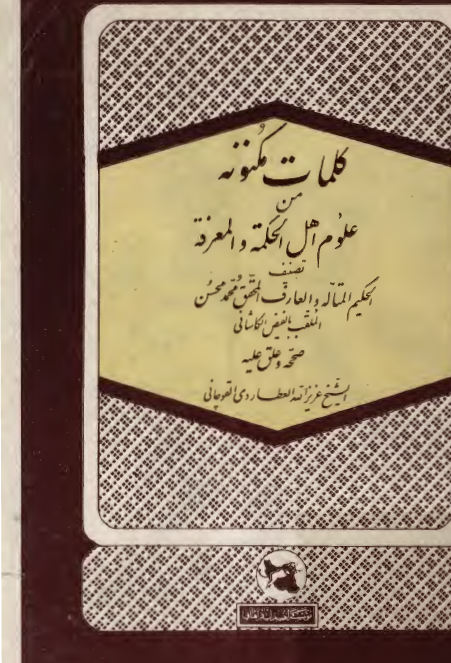 كلمات مكنونه
من
علوم اهل الحكمة والمعرفة
تصنيف
الحكيم المتأله والعارف المحقق محمد محسن
الملقب بالفيض الكاشانى
صححه وعلق عليه
الشيخ عزيزالله العطاردى القوچانى